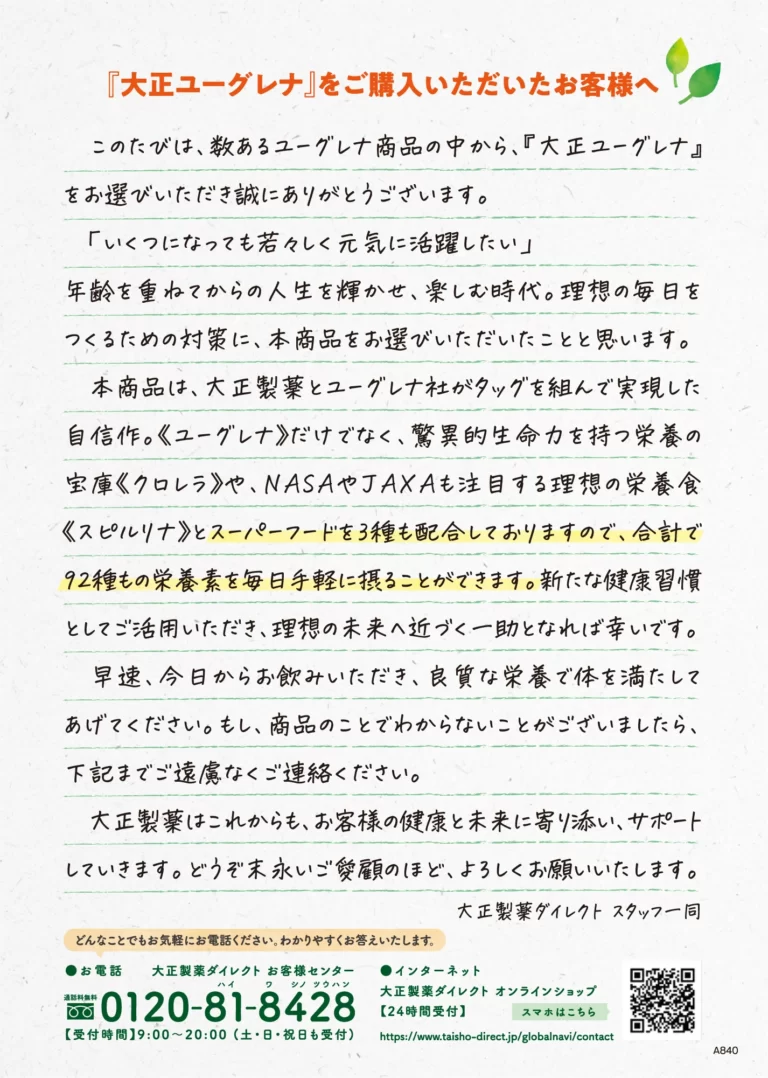 『大正ユーグレナ』をご購入いただいたお客様へ
このたびは、数あるユーグレナ商品の中から、『大正ユーグレナ』
をお選びいただき誠にありがとうございます。
「いくつになっても若々しく元気に活躍したい」
年齢を重ねてからの人生を輝かせ、楽しむ時代。理想の毎日を
つくるための対策に、本商品をお選びいただいたことと思います。
本商品は、大正製薬とユーグレナ社がタッグを組んで実現した
自信作。《ユーグレナ》だけでなく、驚異的生命力を持つ栄養の
宝庫《クロレラ》や、NASAやJAXAも注目する理想の栄養食
《スピルリナ》とスーパーフードを3種も配合しておりますので、合計で
92種もの栄養素を毎日手軽に摂ることができます。新たな健康習慣
としてご活用いただき、理想の未来へ近づく一助となれば幸いです。
早速、今日からお飲みいただき、良質な栄養で体を満たして
あげてください。もし、商品のことでわからないことがございましたら、
下記までご遠慮なくご連絡ください。
大正製薬はこれからも、お客様の健康と未来に寄り添い、サポート
していきます。どうぞ末永いご愛顧のほど、よろしくお願いいたします。
大正製薬ダイレクト スタッフ一同
どんなことでもお気軽にお電話ください。わかりやすくお答えいたします。
●お電話 大正製薬ダイレクト お客様センター
ハイ ワ シノ ツウハン
通話料無料 0120-81-8428
【受付時間】9:00〜20:00（土・日・祝日も受付）
●インターネット
大正製薬ダイレクト オンラインショップ
【24時間受付】 スマホはこちら
https://www.taisho-direct.jp/globalnavi/contact
A840